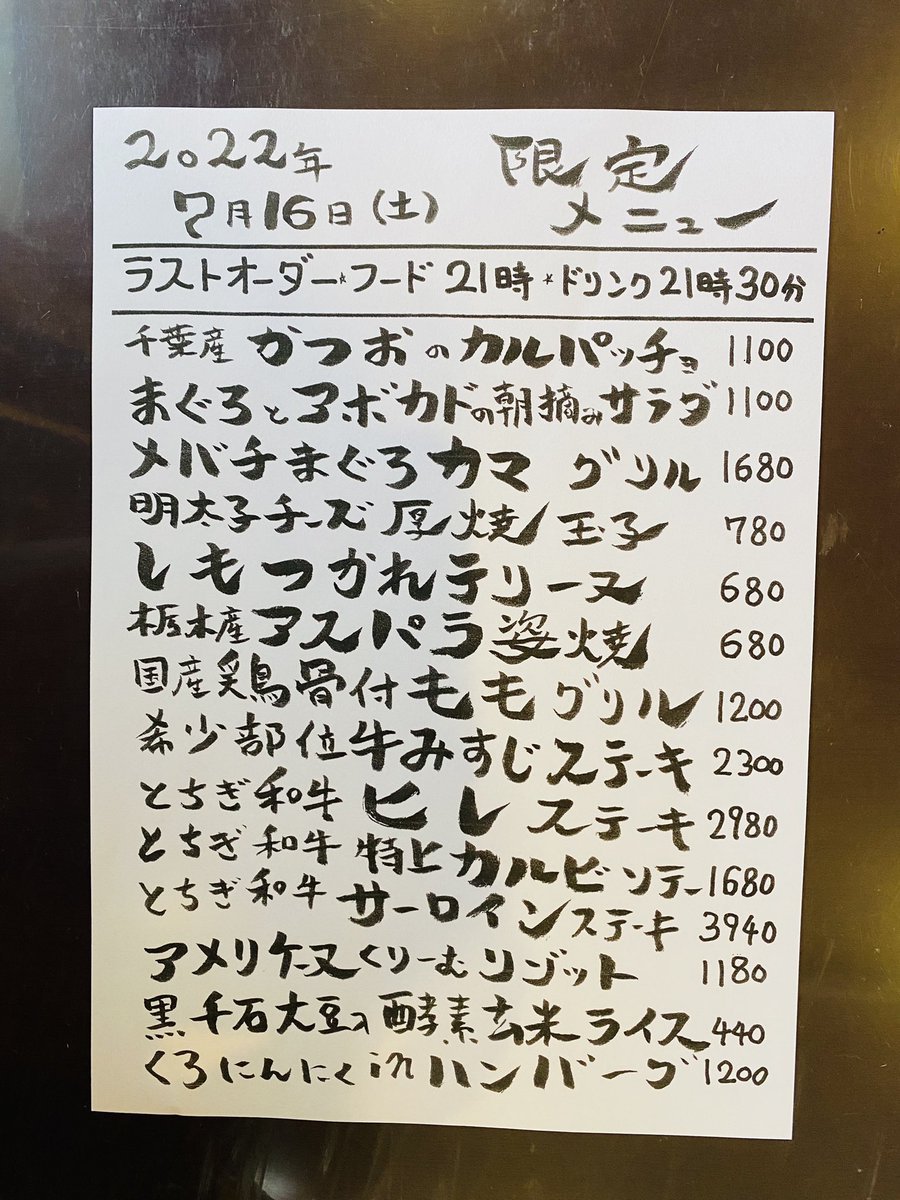 2022年
7月16日(土)
限定
メニュー
ラストオーダー*フード 21時*ドリンク21時30分
千葉産 かつおのカルパッチョ 1100
まぐろとアボカドの朝摘みサラダ 1100
メバチまぐろカマ グリル 1680
明太子チーズ厚焼玉子 780
しもつかれテリーヌ 680
栃木産アスパラ姿焼 680
国産鶏骨付ももグリル 1200
希少部位牛みすじステーキ 2300
とちぎ和牛 ヒレステーキ 2980
とちぎ和牛 特上カルビソテー 1680
とちぎ和牛 サーロインステーキ 3940
アメリケーヌくりーむリゾット 1180
黒千石大豆入酵素玄米ライス 440
くろにんにくinハンバーグ 1200